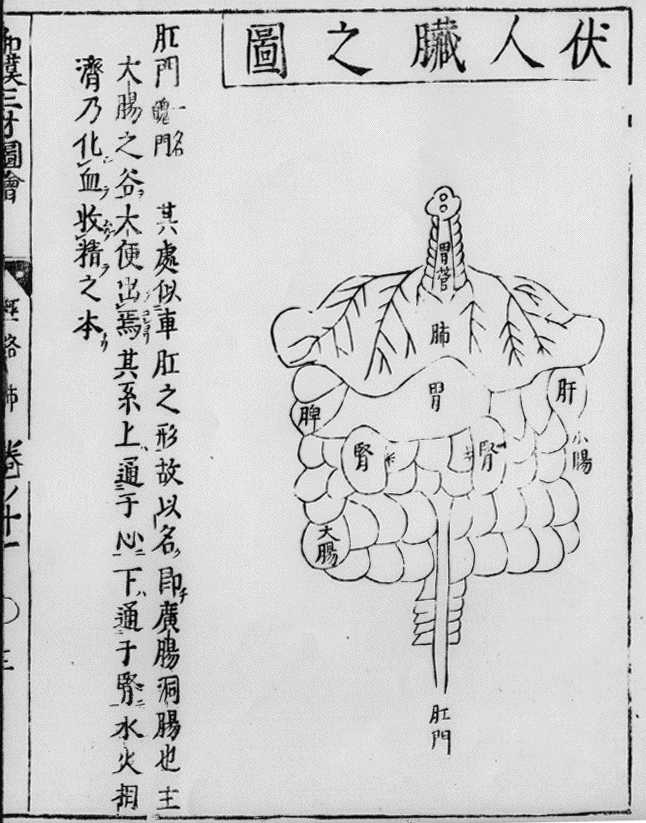 伏人臟之圖
胃菅
肺
胃
脾
肝
腎
腎
小腸
大腸
肛門
肛門 一名魄門 其處似車肛之形故以名即廣腸洞腸也主
大腸之谷大便出焉其系上通于心下通于腎水火相
濟乃化血收精之本
和漢三才圖會 經絡部 卷ノ十一 〇 三